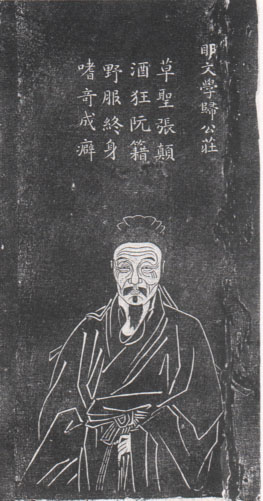 眀文學歸公莊
草聖張顛
酒狂阮籍
野服終身
嗜奇成癖